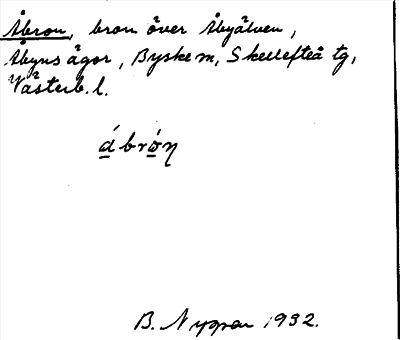 Åbron, bron över Åbyälven,
Åbyns ägor, Byske sn, Skellefteå tg,
Västerb. l.
á̱bró̱ŋ
B. Nygren 1932.